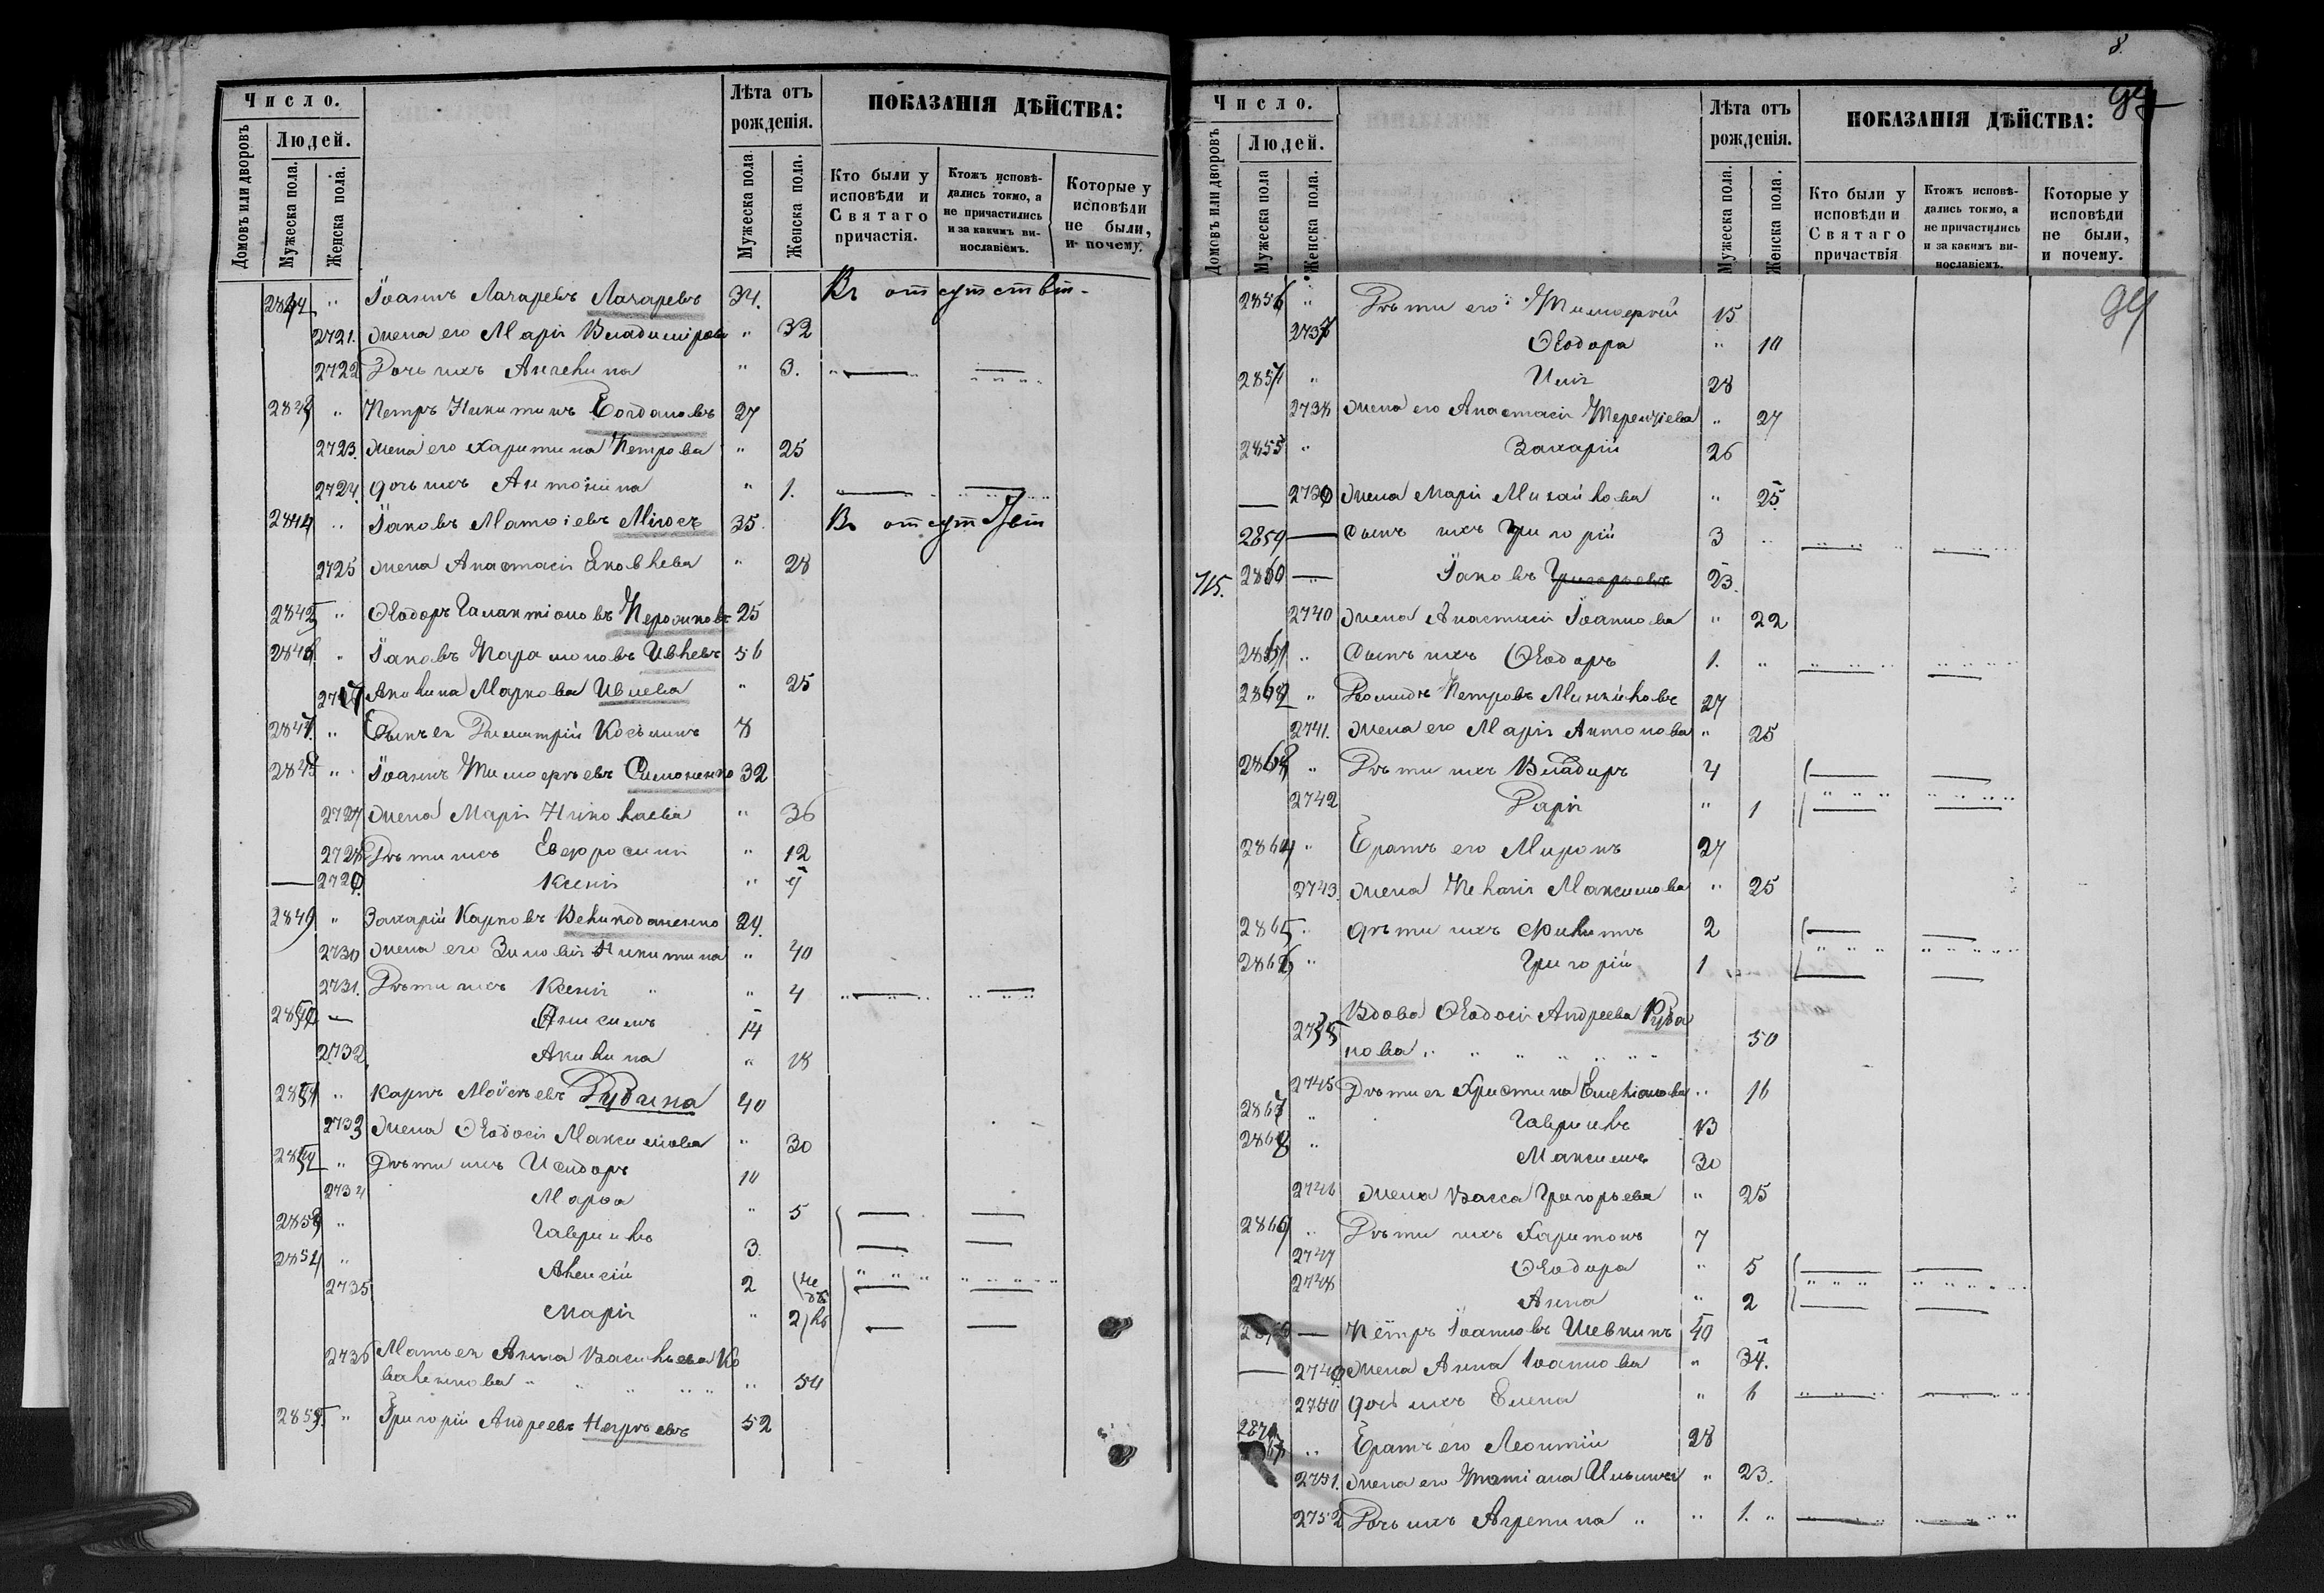 Число.
Людей.
Домовъ или дворовъ
Мужеска пола.
Женска пола.
Лѣта отъ
рожденія.
Мужеска пола
Женска пола.
ПОКАЗАНІЯ ДѢЙСТВА:
Кто были у
исповѣди и
Святаго
причастія.
Ктожъ исповѣ-
дались токмо, а
не причастились
и за какимъ ви-
нословіемъ.
Которые у
исповѣди
не были,
и почему.
" Іоаннъ Лазаревъ Лазаревъ 34. Въ отсутствіи
2721. Жена его Марія Владимірова " 32
2722 Дочь ихъ Ангелина " 3.
2843 " Петръ Никитинъ Богдановъ 27
2723. Жена его Харитина Петрова " 25
2724. Дочь ихъ Антонина " 1.
2844 " Іаковъ Матѳіевъ 35. Въ отсутствіи
2725 Жена Анастасія Яковлева " 28
2845 " Ѳеодоръ Галактіоновъ 25
2846 " Іаковъ Парамоновъ Ивлевъ 56
Акилина Маркова Ивлева " 25
2847. " Сынъ ея Димитрій Косьминъ 8
2848 " Іоаннъ Тимоѳеевъ Симоненко 32
2727 Жена Марія Николаева " 36
2728 Дѣти ихъ Евфросинія " 12
2729 Ксенія "
2849 " Захарій Карповъ Великоданенко 24.
2730 Жена его Зиновія Никитина " 40
2731. Дѣти ихъ Ксенія " " 4
2850 — Анисимъ 14
2732 Акилина " 18
" Карпъ Моѵсеевъ Рубина 40
2733 Жена Ѳеодосія Максимова " 30
" Дѣти ихъ Исидоръ 10
2734 Марѳа " 5
2853 " Гавріилъ 3.
2854 " Алексій 2
2735 Марія " 2
2736 Мать ея Анна Васильева Ко
валенкова " " " " " " 54
2855. " Григорій Андреевъ 52
8.
94
Число.
Людей.
Домовъ или дворовъ
Мужеска пола
Женска пола.
Лѣта отъ
рожденія.
Мужеска пола.
Женска пола.
ПОКАЗАНІЯ ДѢЙСТВА:
Кто были у
исповѣди и
Святаго
причаствія
Ктожъ исповѣ-
дались токмо, а
не причастились
и за какимъ ви-
нославіемъ.
Которые у
исповѣди
не были,
и почему.
94
2856 " Дѣти его: Тимоѳей 15
2737 Ѳеодора " 10
2857 " Илія 28
2738 Жена его Анастасія Терентіева " 27
" Захарій 26
2739 Жена Марія Михайлова " 25
2859 — Сынъ ихъ Григорій 3 "
715. 2860 — Іаковъ Григорьевъ 23.
2740 Жена Анастасія Іоаннова " 22
2861 " Сынъ ихъ Ѳеодоръ 1. "
2862 " Петровъ 27
2741. Жена его Марія Антонова " 25
2863 " Дѣти ихъ 4
2742 Дарія " 1
2864 " Братъ его Миронъ 27
2743. Жена Пелагія Максимова " 25
2865 " Дѣти ихъ Филиппъ 2
2866 " Григорій 1
Вдова Ѳеодосія Андреева Руба
нова " " " " " " " 50
2745 Дѣти ея Христина Емеліанова " 16
2867 " Гавріилъ 13
2868 " Максимъ 30
2746 Жена Васса Григорьева " 25
2869 " Дѣти ихъ Харитонъ 7
2747 Ѳеодора " 5
2748 Анна " 2
— Петръ Іоанновъ Шевкинъ 40
2749 Жена Анна Іоаннова " 34.
2750 Дочь ихъ Елена " 6
2871 " Братъ его Леонтій 28
2751. Жена его Татіана Ильина " 23.
2752 Дочь ихъ Агрепина " " 1. "